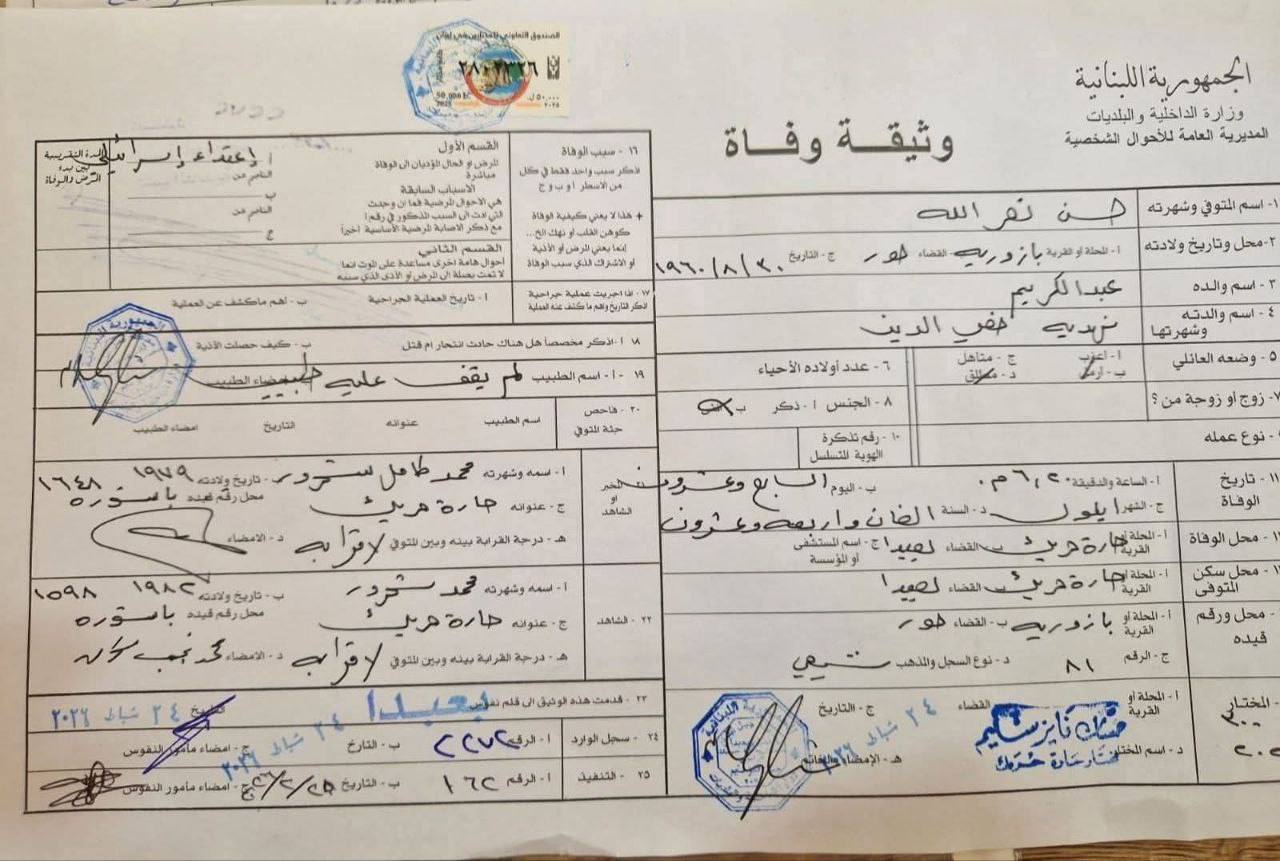 الجمهورية اللبنانية
وزارة الداخلية والبلديات
المديرية العامة للأحوال الشخصية
وثيقة وفاة
الصندوق التعاوني للمختارين في لبنان
٢٨٠٢٣٢٦
50,000
٥٠,٠٠٠ ل.
٢٠٢٥
١- اسم المتوفي وشهرته حسن نصر الله
٢- محل وتاريخ ولادته أ- المحلة او القرية بازوريه القضاء صور ج- التاريخ ١٩٦٠/٨/٣٠
٣ - اسم والده عبد الكريم
٤ - اسم والدته وشهرتها نهديه صفي الدين
٥ - وضعه العائلي أ- اعزب ب- أرمل ج - متاهل د- مطلق
٦ - عدد أولاده الأحياء
٧- زوج او زوجة من؟
٨ - الجنس أ - ذكر ب
نوع عمله
١٠ - رقم تذكرة الهوية للتسلسل
١١ - تاريخ الوفاة أ- الساعة والدقيقة ٦,٢٠ م. ب - اليوم السابع وعشرون
ج- الشهر ايلول د - السنة الفان واربعه وعشرون
محل الوفاة أ- المحلة او القرية حارة حريك ب- القضاء بعبدا ج - اسم المستشفى أو المؤسسة
محل سكن المتوفى أ- المحلة او القرية حارة حريك القضاء بعبدا
محل ورقم قيده أ- المحلة او القرية بازوريه ب- القضاء صور
ج- الرقم ٨١ د - نوع السجل والمذهب شيعي
المختار أ- المحلة او القرية القضاء ج - التاريخ ٢٤ شباط ٢٠٢٦
د - اسم المختار هـ - الإمضاء والخاتم
مختار حارة حريك
١٦ - سبب الوفاة
اذكر سبب واحد فقط في كل من الاسطر أ و ب و ج
+ هذا لا يعني كيفية الوفاة
كوهن القلب او نهك الخ...
إنما يعني المرض أو الأذية
او الاشتراك الذي سبب الوفاة
القسم الأول
المرض او الحال المؤديان الى الوفاة مباشرة
أ إعتداء إسرائيلي
الناتج عن
الاسباب السابقة
هي الاحوال المرضية فما ان وجدت
التي ادت الى السبب المذكور في رقم أ
مع ذكر الاصابة المرضية الأساسية اخيراً
ب
الناتج عن
ج
القسم الثاني
احوال هامة اخرى مساعدة على الموت انما
لا تمت بصلة الى المرض او الأذى الذي سببه
المدة التقريبية بين بدء المرض والوفاة
١٧- اذا اجريت عملية جراحية اذكر التاريخ واهم ما كشف عنه العملية أ - تاريخ العملية الجراحية ب - اهم ماكشف عن العملية
١٨ أ- اذكر مخصصاً هل هناك حادث انتحار ام قتل ب - كيف حصلت الأذية
١٩ - أ- اسم الطبيب لم يقف عليه طبيب امضاء الطبيب
٢٠ - فاحص جثة المتوفي اسم الطبيب عنوانه التاريخ امضاء الطبيب
المخبر او الشاهد أ- اسمه وشهرته محمد كامل شحرور - تاريخ ولادته ١٩٧٩
ج- عنوانه حارة حريك محل رقم قيده ١٦٤٨
هـ - درجة القرابة بينه وبين المتوفي لا قرابه د - الامضاء
٢٢ - الشاهد أ- اسمه وشهرته محمد شحرور ب- تاريخ ولادته ١٩٨٢
ج - عنوانه حارة حريك محل رقم قيده ١٥٩٨
هـ- درجة القرابة بينه وبين المتوفي لا قرابه د - الامضاء
٢٣ - قدمت هذه الوثيق الى قلم نفوس بعبدا تاريخ ٢٤ شباط ٢٠٢٦
٢٤ - سجل الوارد أ- الرقم ٢٢٧٢ ب - التارخ ٢٤ شباط ٢٠٢٦ ج- امضاء مأمور النفوس
٢٥ - التنفيذ أ- الرقم ١٦٢ ب - التاريخ ج- امضاء مأمور النفوس